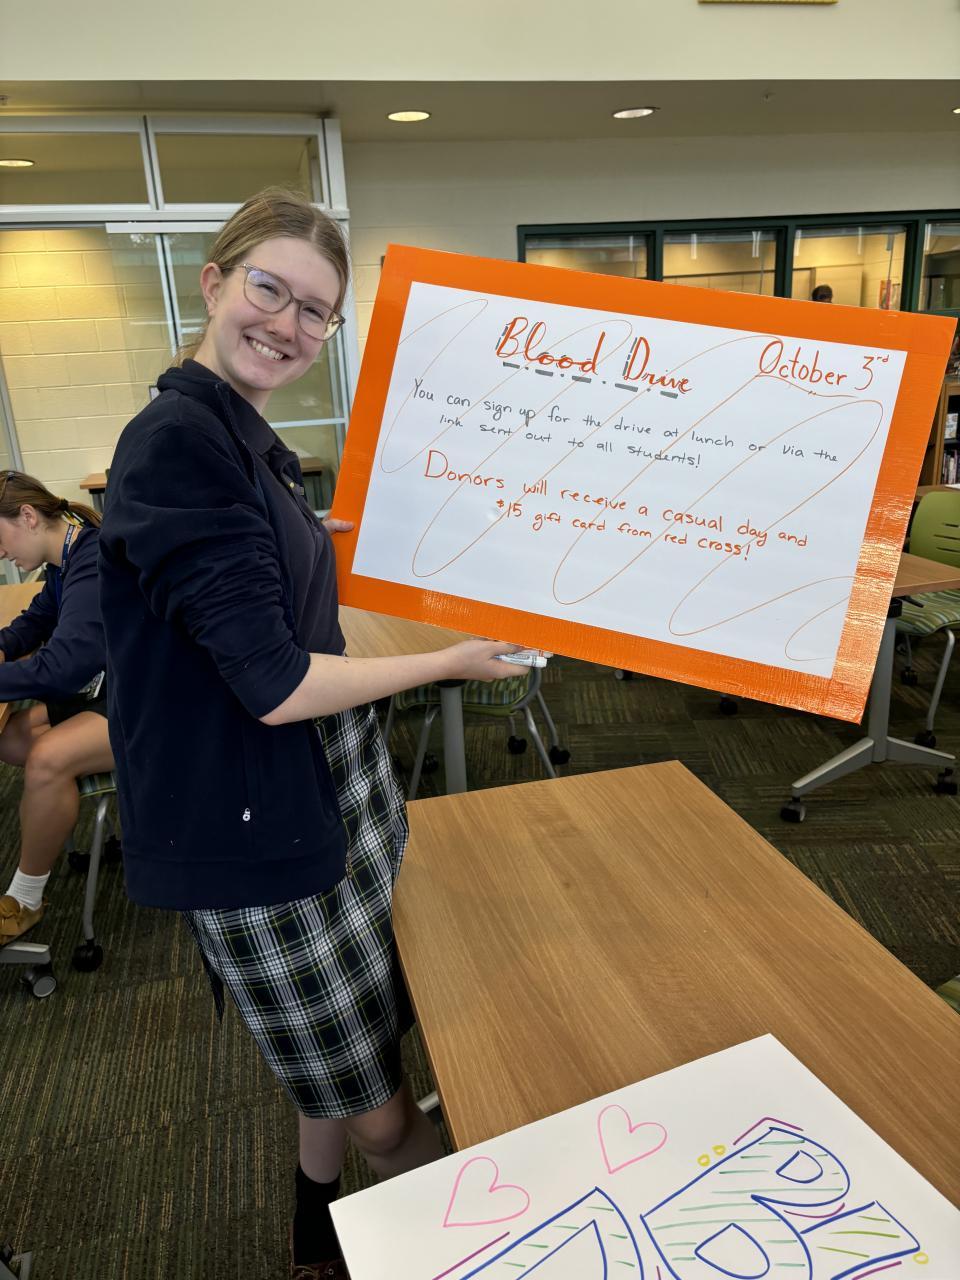 Blood Drive
October 3rd
You can sign up for the drive at lunch or via the
link sent out to all students!
Donors will receive a casual day and
$15 gift card from red cross!